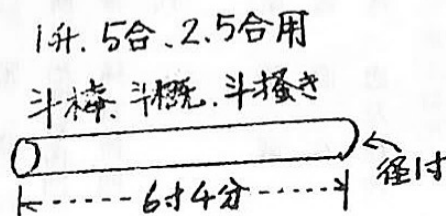 1升、5合、2.5合用
斗棒、斗概、斗掻き
径1寸
6寸4分